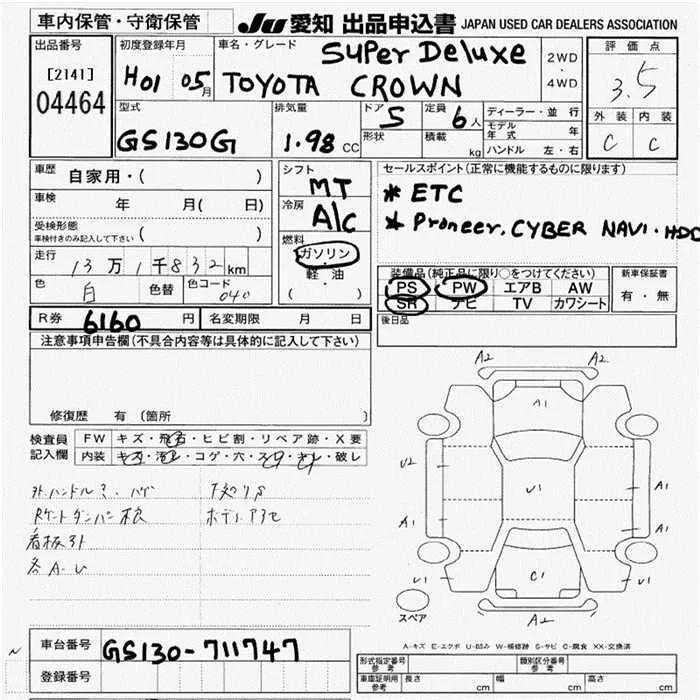 車内保管・守衛保管 JU 愛知 出品申込書 JAPAN USED CAR DEALERS ASSOCIATION
出品番号 初度登録年月 車名・グレード Super Deluxe 2WD・4WD 評価点
[2141] H01 05月 TOYOTA CROWN 3.5
04464
型式 排気量 ドア 5 定員 6人 ディーラー・並行 外装 内装
GS130G 1.98 CC 形状 積載 kg モデル年式 年 C C
ハンドル 左・右
車歴 自家用・( ) シフト セールスポイント(正常に機能するものに限ります)
MT
車検 年 月( 日) 冷房 A/C * ETC
受検形態 車検付きのみ記入して下さい ( ) 燃料 * Proneer. CYBER NAVI・HDD
走行 13万1千832km ガソリン・軽油
( )
色 白 色替 色コード 040 装備品(純正品に限り○をつけてください) 新車保証書
PS PW エアB AW 有・無
SR ナビ TV カワシート
R券 6160 円 名変期限 月 日 後日品
注意事項申告欄(不具合内容等は具体的に記入して下さい)
修復歴 有 (箇所 )
検査員記入欄 FW キズ・飛石・ヒビ割・リペア跡・X要
内装 キズ・汚レ・コゲ・穴・スレ・オレ・破レ
看板外
各A-U
A2 A2
A1
U2 U1 A1
A1 A1
U1 C1 U1
スペア A2
A-キズ E-エクボ U-凹み W-補修跡 S-サビ C-腐食 XX-交換済
車台番号 GS130-711747
登録番号
形式指定番号 参考 類別区分番号 参考
車庫証明用 参考 長さ cm 幅 cm 高さ cm